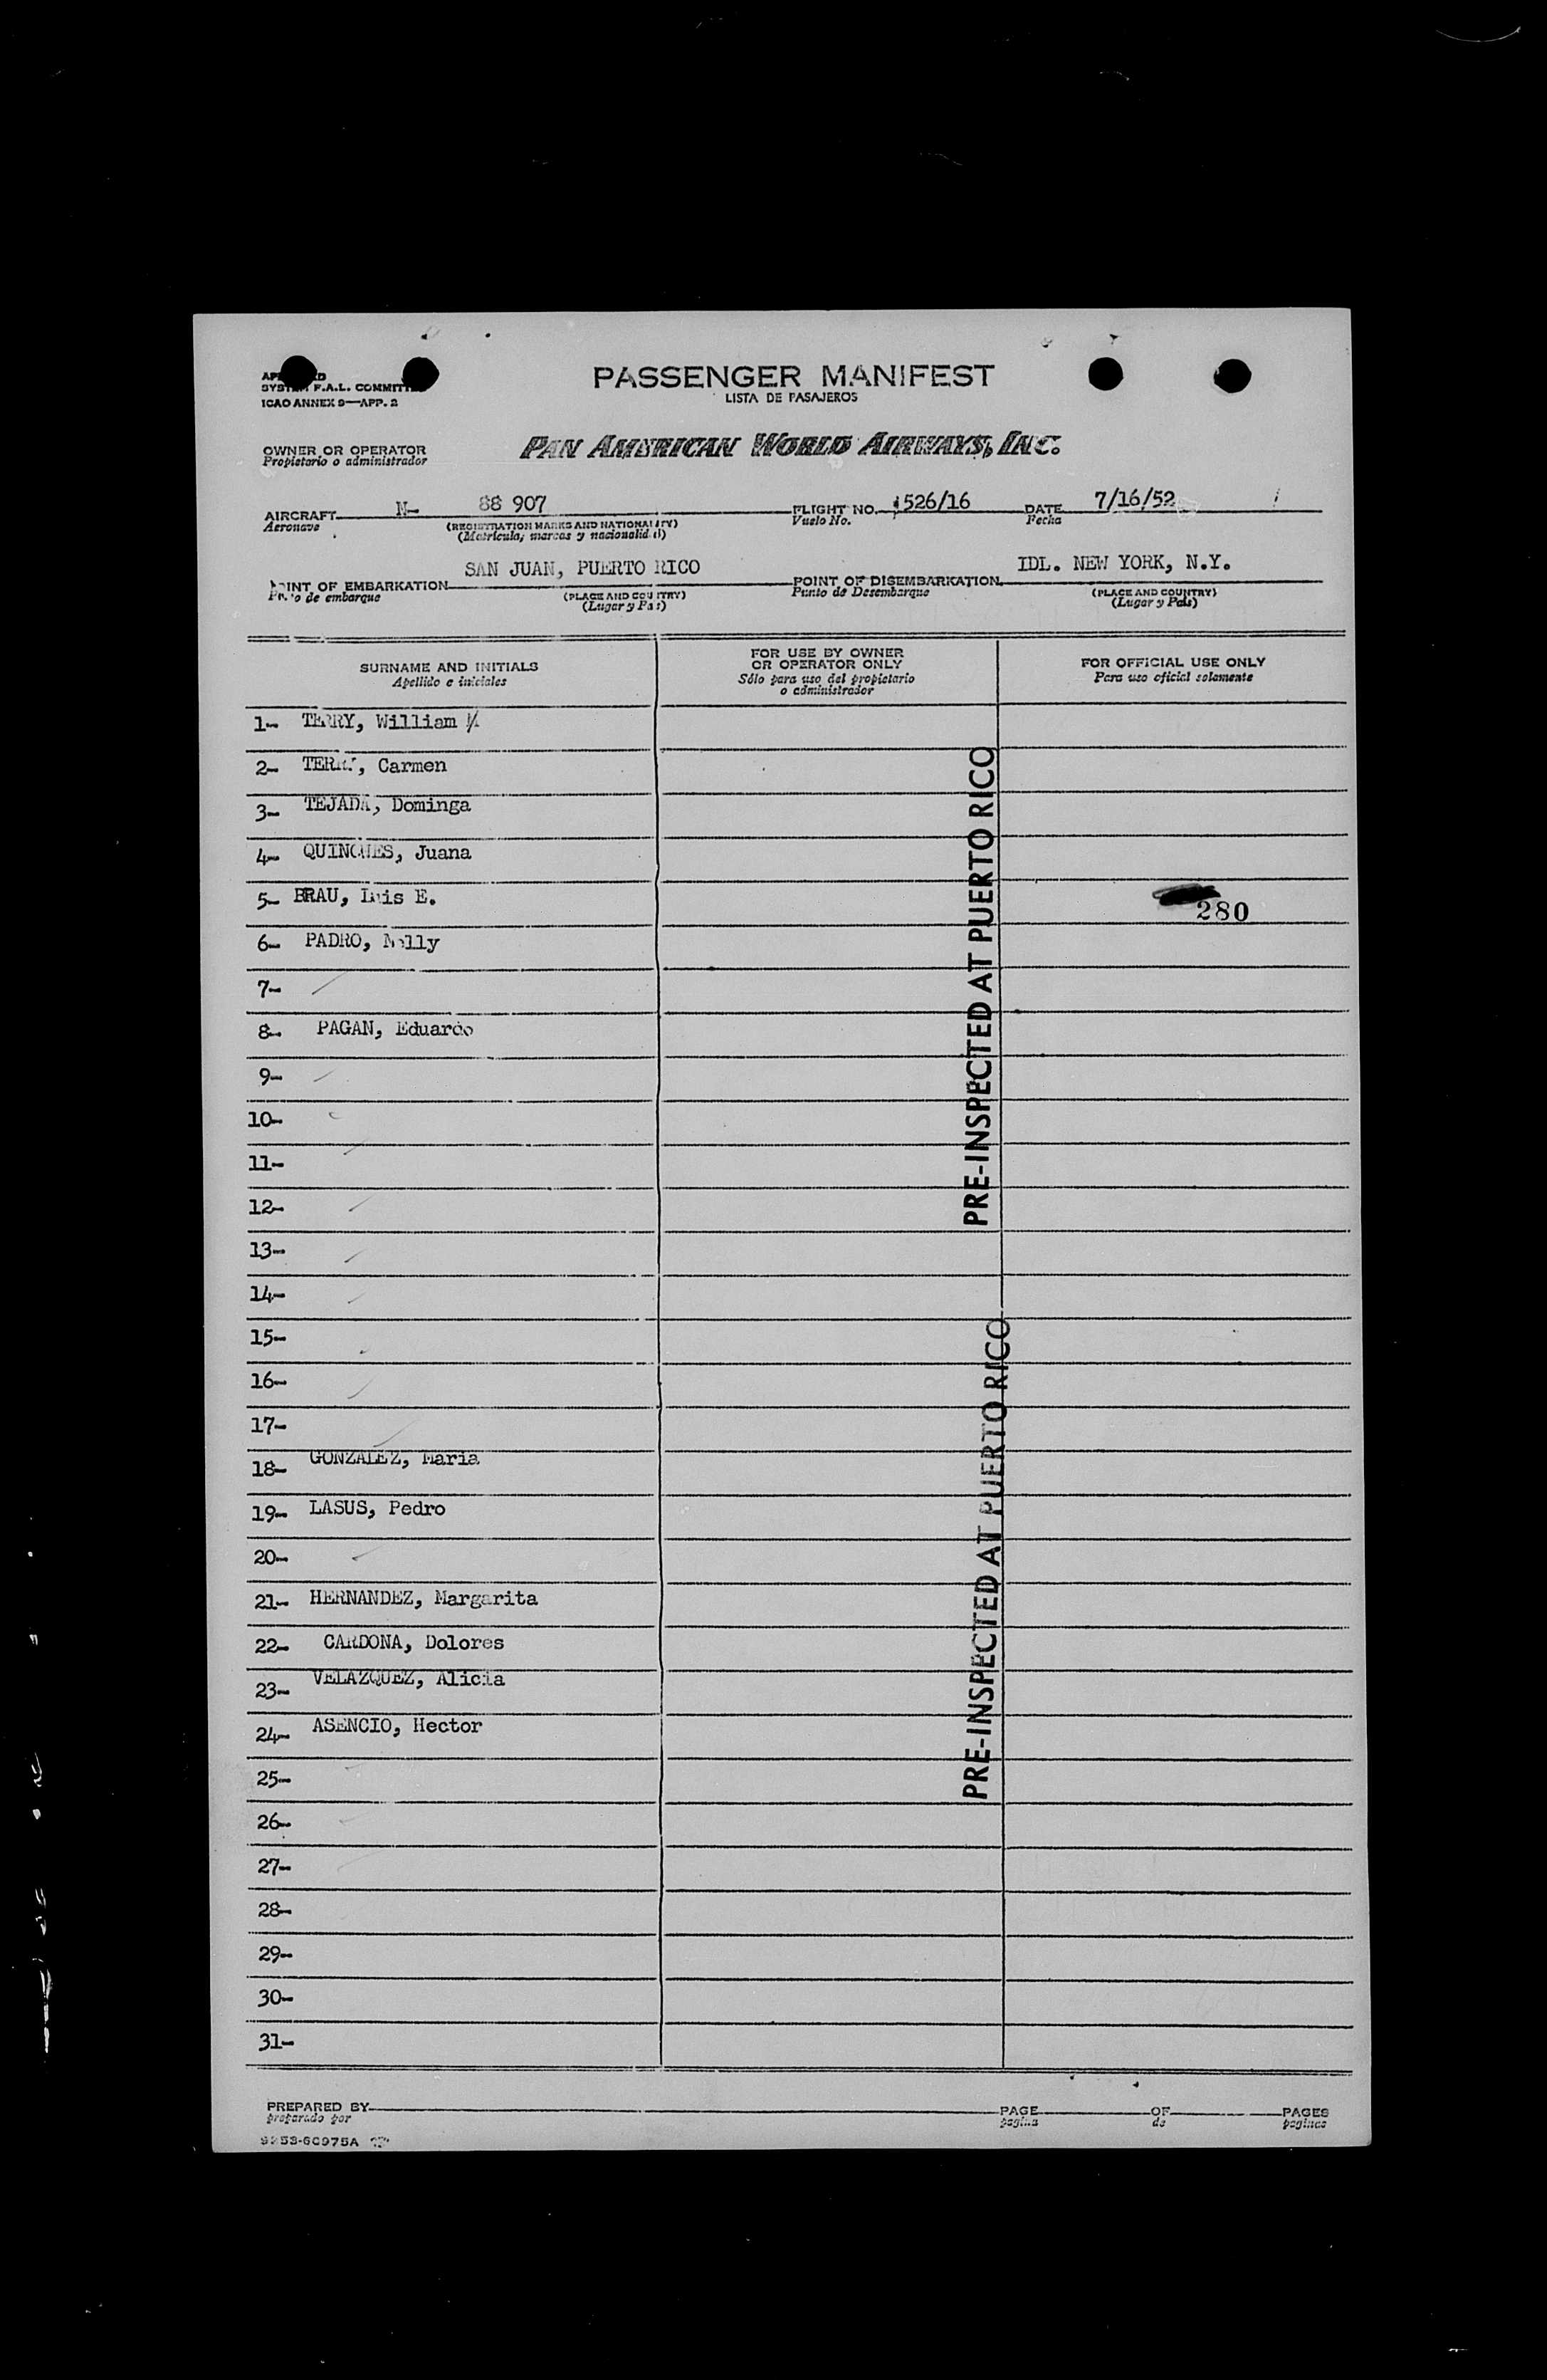 SYSTEM F.A.L. COMMITTEE
ICAO ANNEX 9—APP. 2
PASSENGER MANIFEST
LISTA DE PASAJEROS
OWNER OR OPERATOR
Propietario o administrador
PAN AMERICAN WORLD AIRWAYS, INC.
AIRCRAFT N- 88 907 FLIGHT NO. 526/16 DATE 7/16/52
Aeronave (REGISTRATION MARKS AND NATIONALITY) Vuelo No. Fecha
(Matricula, marcas y nacionalidad)
POINT OF EMBARKATION SAN JUAN, PUERTO RICO POINT OF DISEMBARKATION IDL. NEW YORK, N.Y.
Punto de embarque (PLACE AND COUNTRY) Punto de Desembarque (PLACE AND COUNTRY)
(Lugar y Pais) (Lugar y País)
SURNAME AND INITIALS
Apellido e iniciales
FOR USE BY OWNER
OR OPERATOR ONLY
Sólo para uso del propietario
o administrador
FOR OFFICIAL USE ONLY
Para uso oficial solamente
1- TERRY, William
2- TERRY, Carmen
3- TEJADA, Dominga
4- QUINONES, Juana
5- BRAU, Luis E.
280
6- PADRO, Nelly
7-
8- PAGAN, Eduardo
9-
10-
11-
12-
13-
14-
15-
16-
17-
18- GONZALEZ, Maria
19- LASUS, Pedro
20-
21- HERNANDEZ, Margarita
22- CARDONA, Dolores
23- VELAZQUEZ, Alicia
24- ASENCIO, Hector
25-
26-
27-
28-
29-
30-
31-
PRE-INSPECTED AT PUERTO RICO
PRE-INSPECTED AT PUERTO RICO
PREPARED BY PAGE OF PAGES
preparado por pagina de paginas